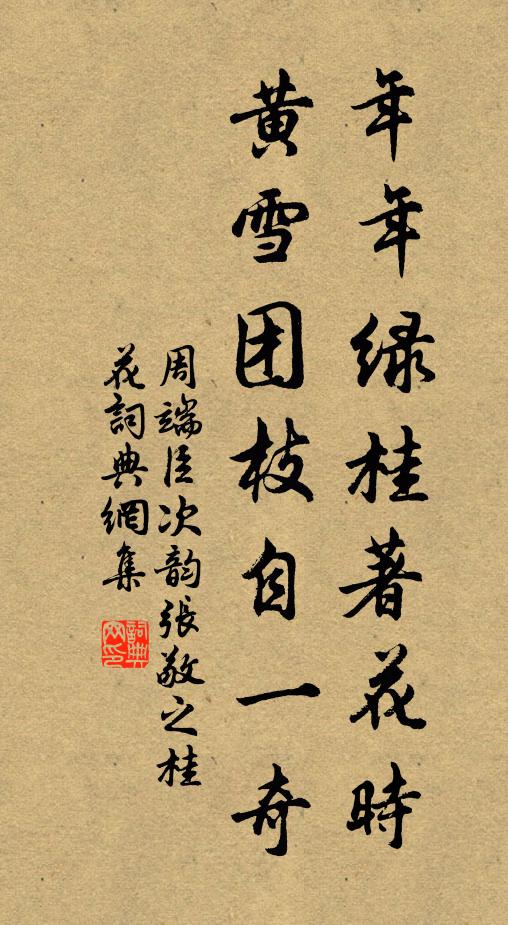 年年绿桂著花時
黄雪团枝自一奇
周端臣次韵張敬之桂
花詞典網集
詞典
网印